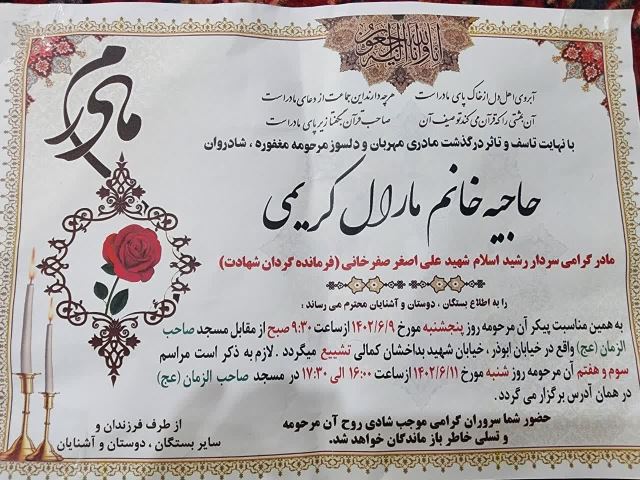 انا لله و انا الیه راجعون
مادرم
آبروی اهل دل از خاک پای مادر است
هر چه دارند این جماعت از دعای مادر است
آن بهشتی را که قرآن می کند توصیف آن
صاحب قرآن بگفتا زیر پای مادر است
با نهایت تاسف و تاثر درگذشت مادری مهربان و دلسوز مرحومه مغفوره ، شادروان
حاجیه خانم مارال کریمی
مادر گرامی سردار رشید اسلام شهید علی اصغر صفرخانی (فرمانده گردان شهادت)
را به اطلاع بستگان ، دوستان و آشنایان محترم می رساند :
به همین مناسبت پیکر آن مرحومه روز پنجشنبه مورخ ۱۴۰۲/۶/۹ از ساعت ۹:۳۰ صبح از مقابل مسجد صاحب
الزمان (عج) واقع در خیابان ابوذر ، خیابان شهید بداخشان کمالی تشییع میگردد . لازم به ذکر است مراسم
سوم و هفتم آن مرحومه روز شنبه مورخ ۱۴۰۲/۶/۱۱ از ساعت ۱۶:۰۰ الی ۱۷:۳۰ در مسجد صاحب الزمان (عج)
در همان آدرس برگزار می گردد .
حضور شما سروران گرامی موجب شادی روح آن مرحومه
و تسلی خاطر باز ماندگان خواهد شد.
از طرف فرزندان و
سایر بستگان ، دوستان و آشنایان